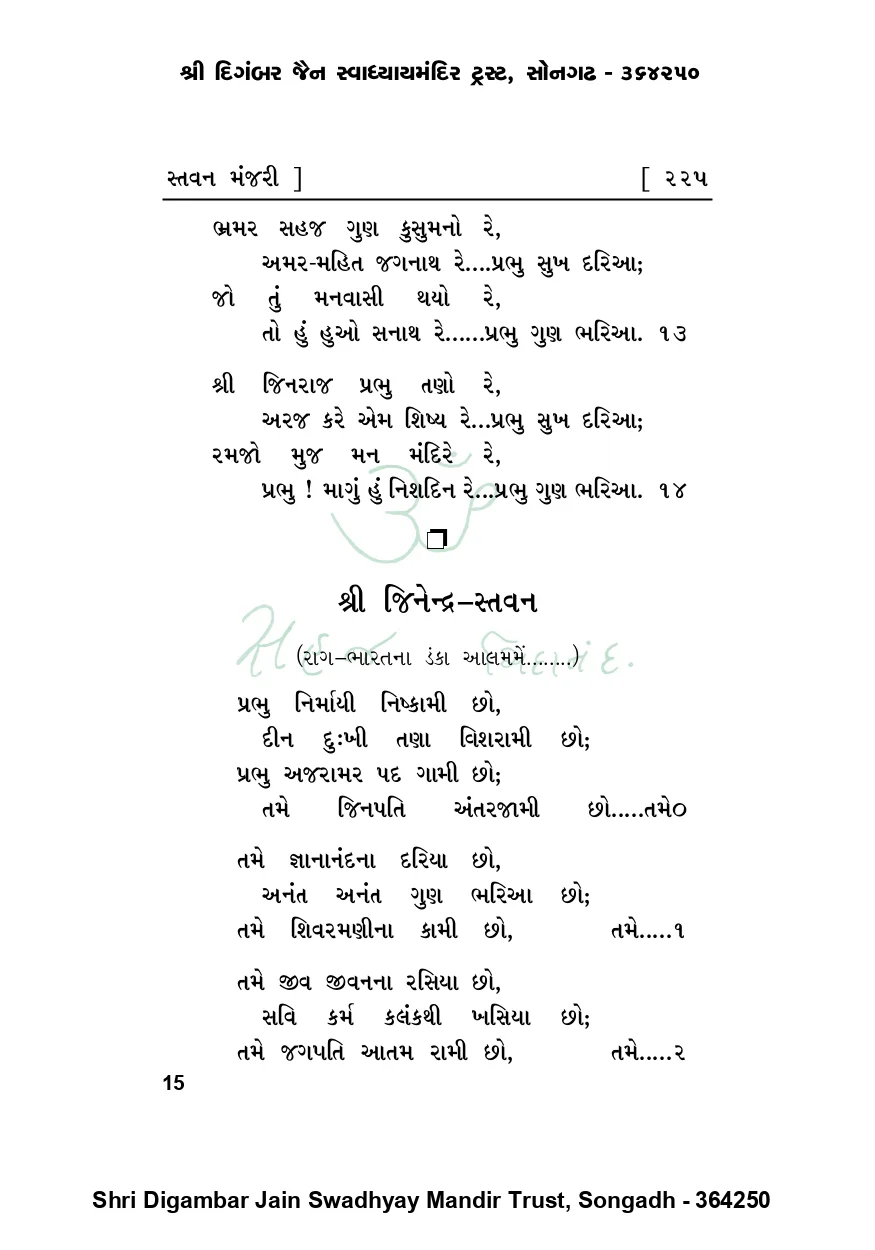 શ્રી દિગંબર જૈન સ્વાધ્યાયમંદિર ટ્રસ્ટ, સોનગઢ - ૩૬૪૨૫૦
સ્તવન મંજરી ] [ ૨૨૫
ભ્રમર સહજ ગુણ કુસુમનો રે,
અમર-મહિત જગનાથ રે....પ્રભુ સુખ દરિઆ;
જો તું મનવાસી થયો રે,
તો હું હુઓ સનાથ રે......પ્રભુ ગુણ ભરિઆ. ૧૩
શ્રી જિનરાજ પ્રભુ તણો રે,
અરજ કરે એમ શિષ્ય રે...પ્રભુ સુખ દરિઆ;
રમજો મુજ મન મંદિરે રે,
પ્રભુ ! માગું હું નિશદિન રે...પ્રભુ ગુણ ભરિઆ. ૧૪
ૐ
શ્રી જિનેન્દ્ર–સ્તવન
સહજ ચિદાનંદ.
(રાગ–ભારતના ડંકા આલમમેં........)
પ્રભુ નિર્માયી નિષ્કામી છો,
દીન દુઃખી તણા વિશરામી છો;
પ્રભુ અજરામર પદ ગામી છો;
તમે જિનપતિ અંતરજામી છો.....તમે૦
તમે જ્ઞાનાનંદના દરિયા છો,
અનંત અનંત ગુણ ભરિઆ છો;
તમે શિવરમણીના કામી છો, તમે.....૧
તમે જીવ જીવનના રસિયા છો,
સવિ કર્મ કલંકથી ખસિયા છો;
તમે જગપતિ આતમ રામી છો, તમે.....૨
15
Shri Digambar Jain Swadhyay Mandir Trust, Songadh - 364250